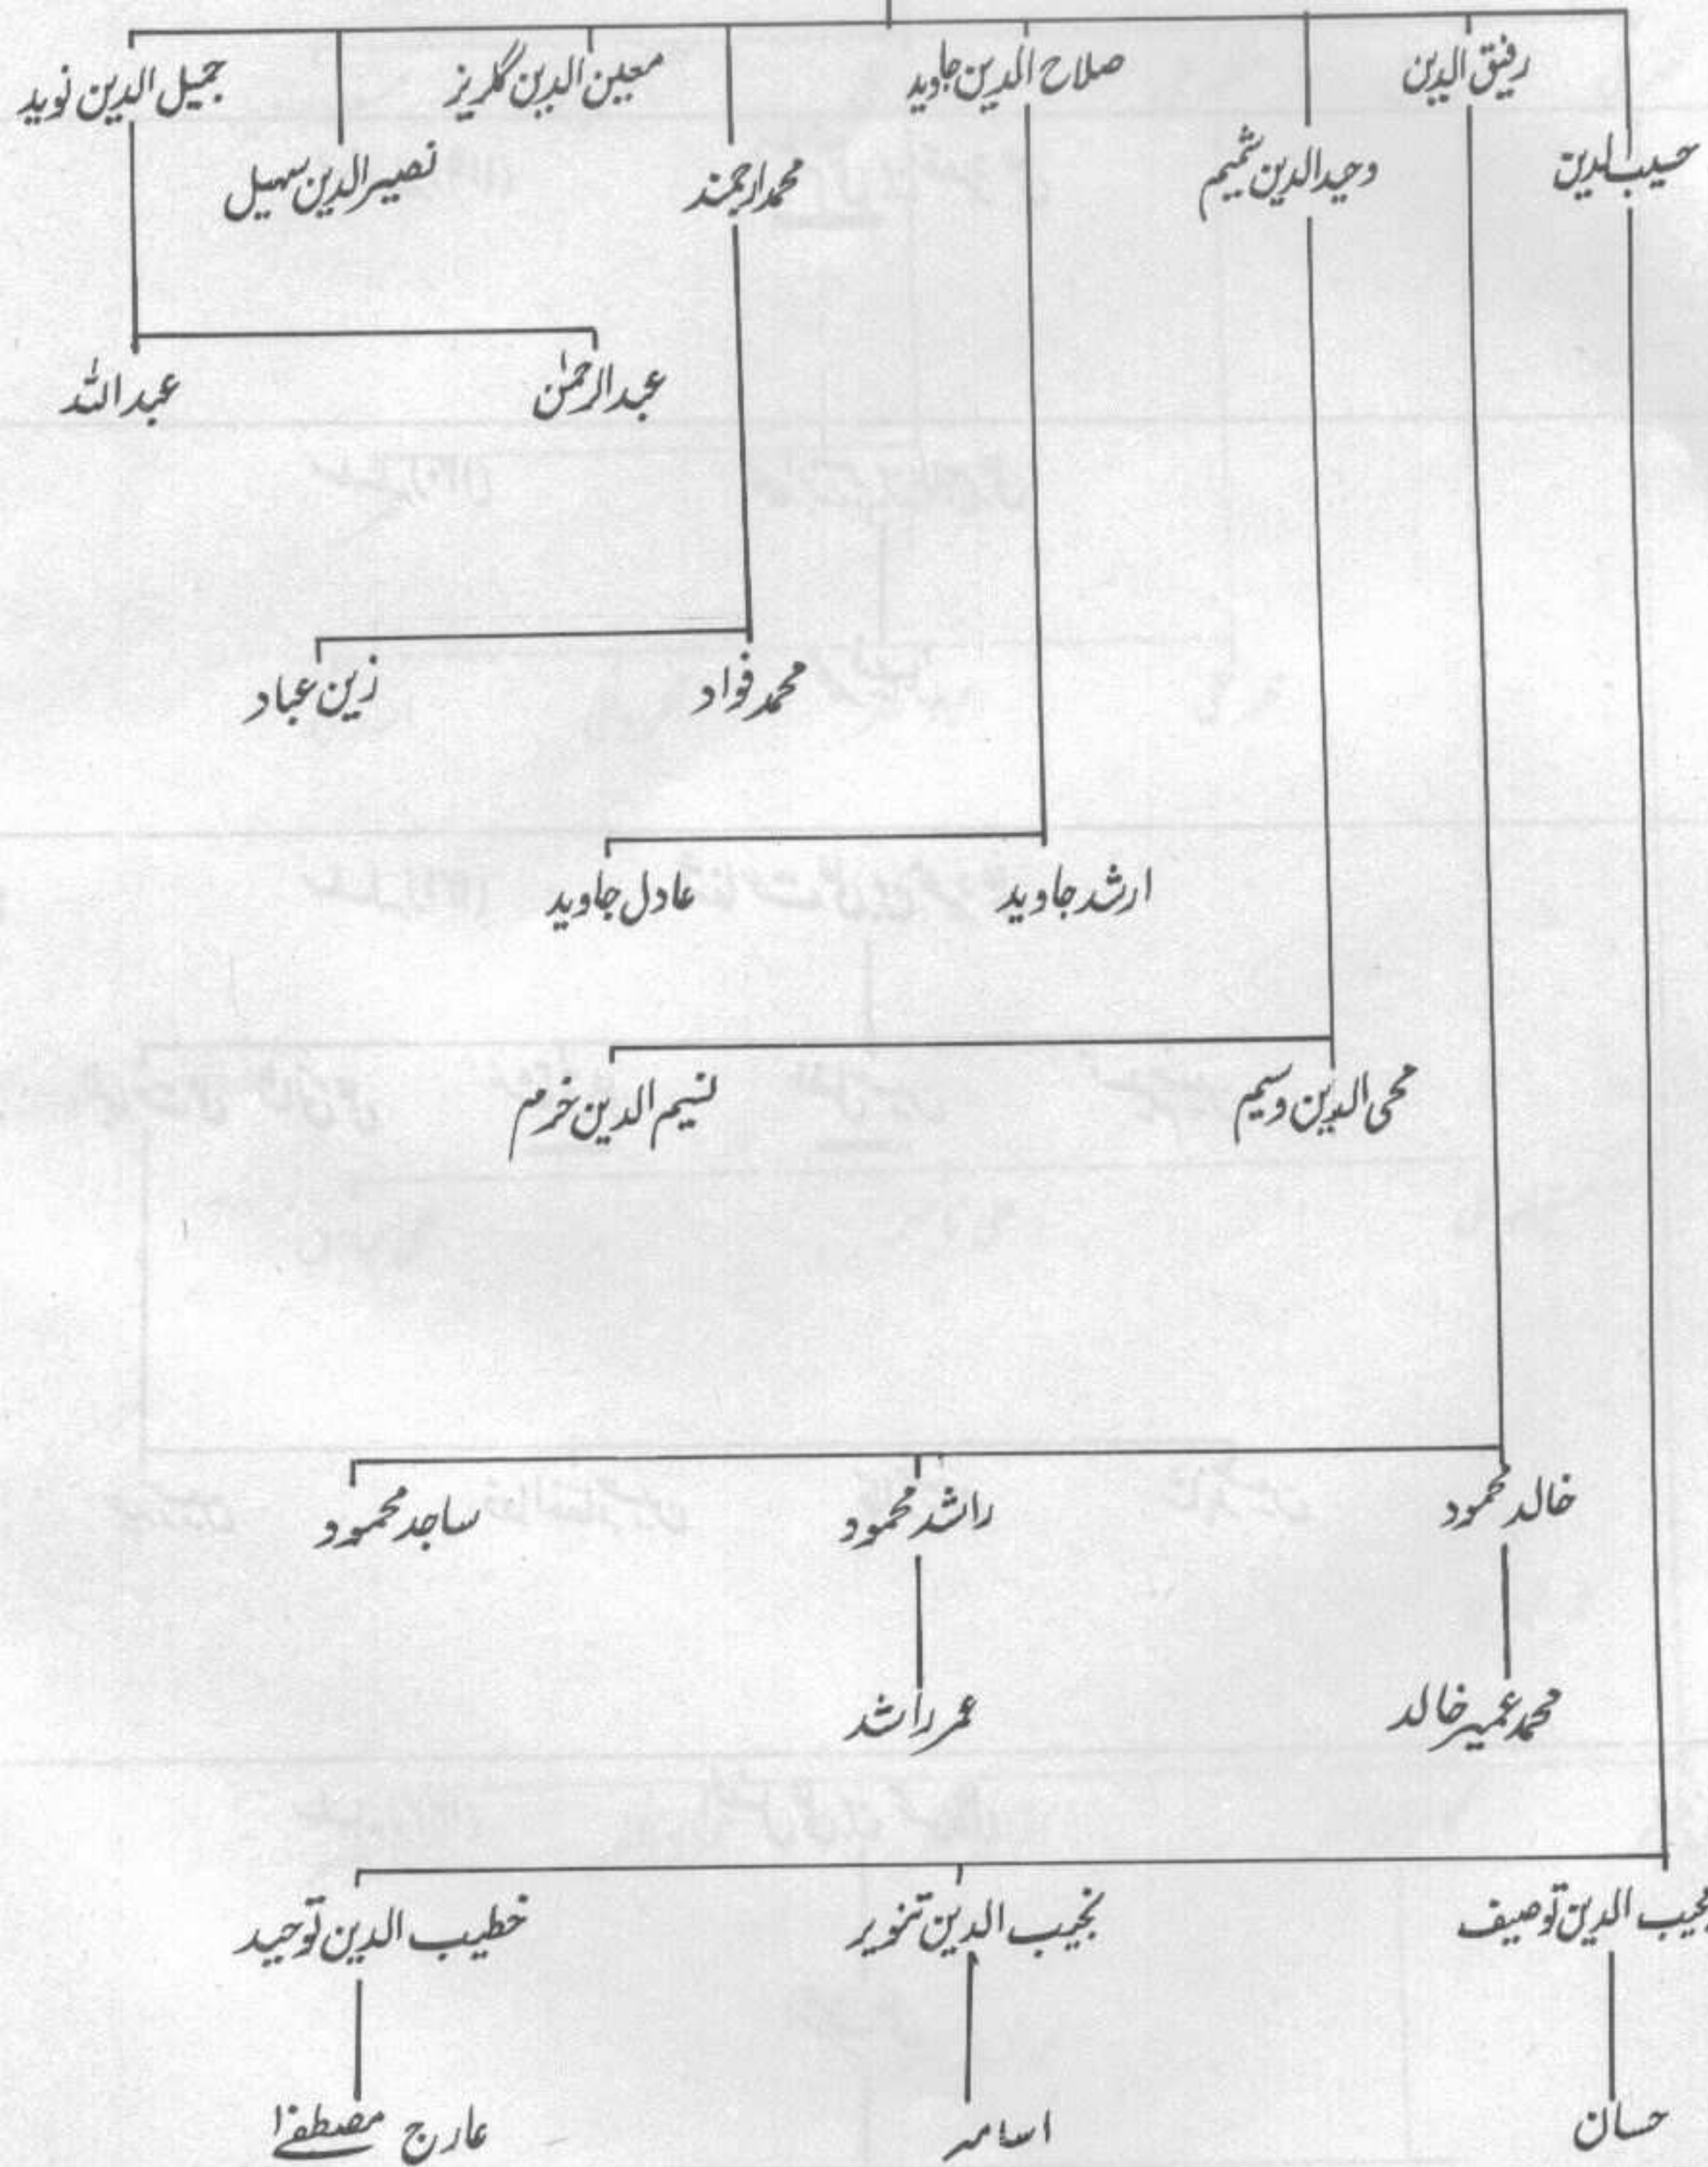 رفیق الدین
صلاح الدین جاوید
معین الدین گلریز
جمیل الدین نوید
حسیب الدین
وحید الدین شمیم
محمد ارجمند
نصیر الدین سہیل
عبد الرحمٰن
عبد اللہ
محمد فواد
زین عباد
ارشد جاوید
عادل جاوید
محی الدین وسیم
نسیم الدین خرم
خالد محمود
راشد محمود
ساجد محمود
محمد عمیر خالد
عمر راشد
الدین توصیف
نجیب الدین تنویر
خطیب الدین توحید
حسان
اسامہ
عارج مصطفےٰ